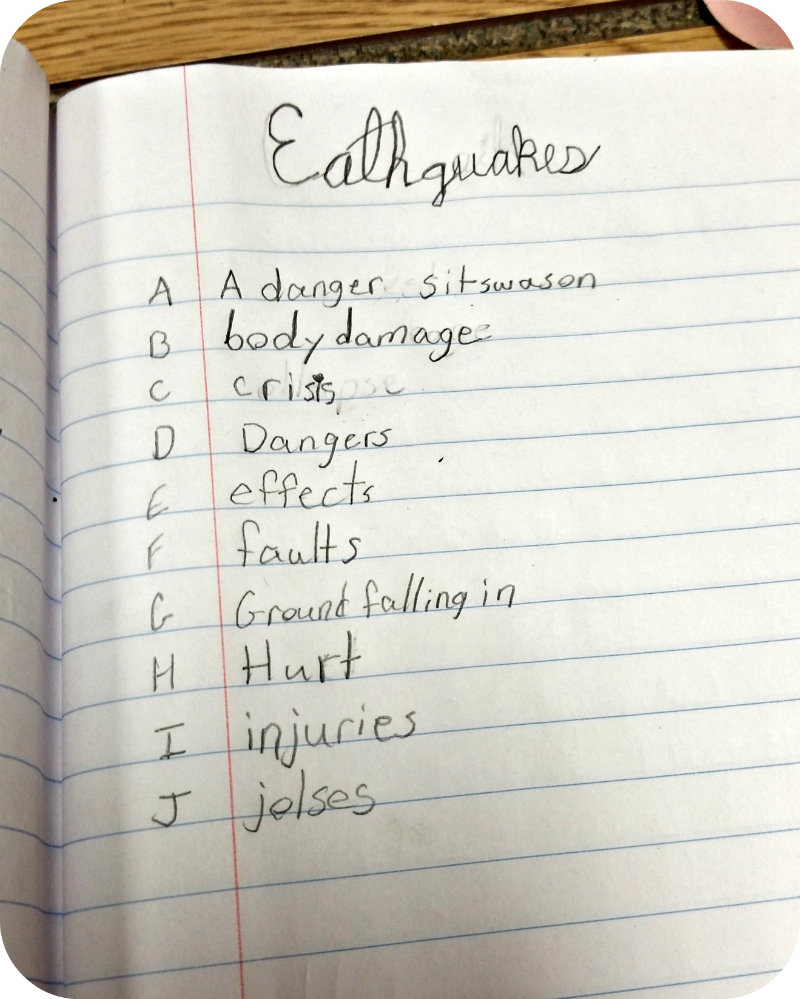 Eathquakes
A A danger sitswason
B body damage
C crisis
D Dangers
E effects
F faults
G Ground falling in
H Hurt
I injuries
J jolses